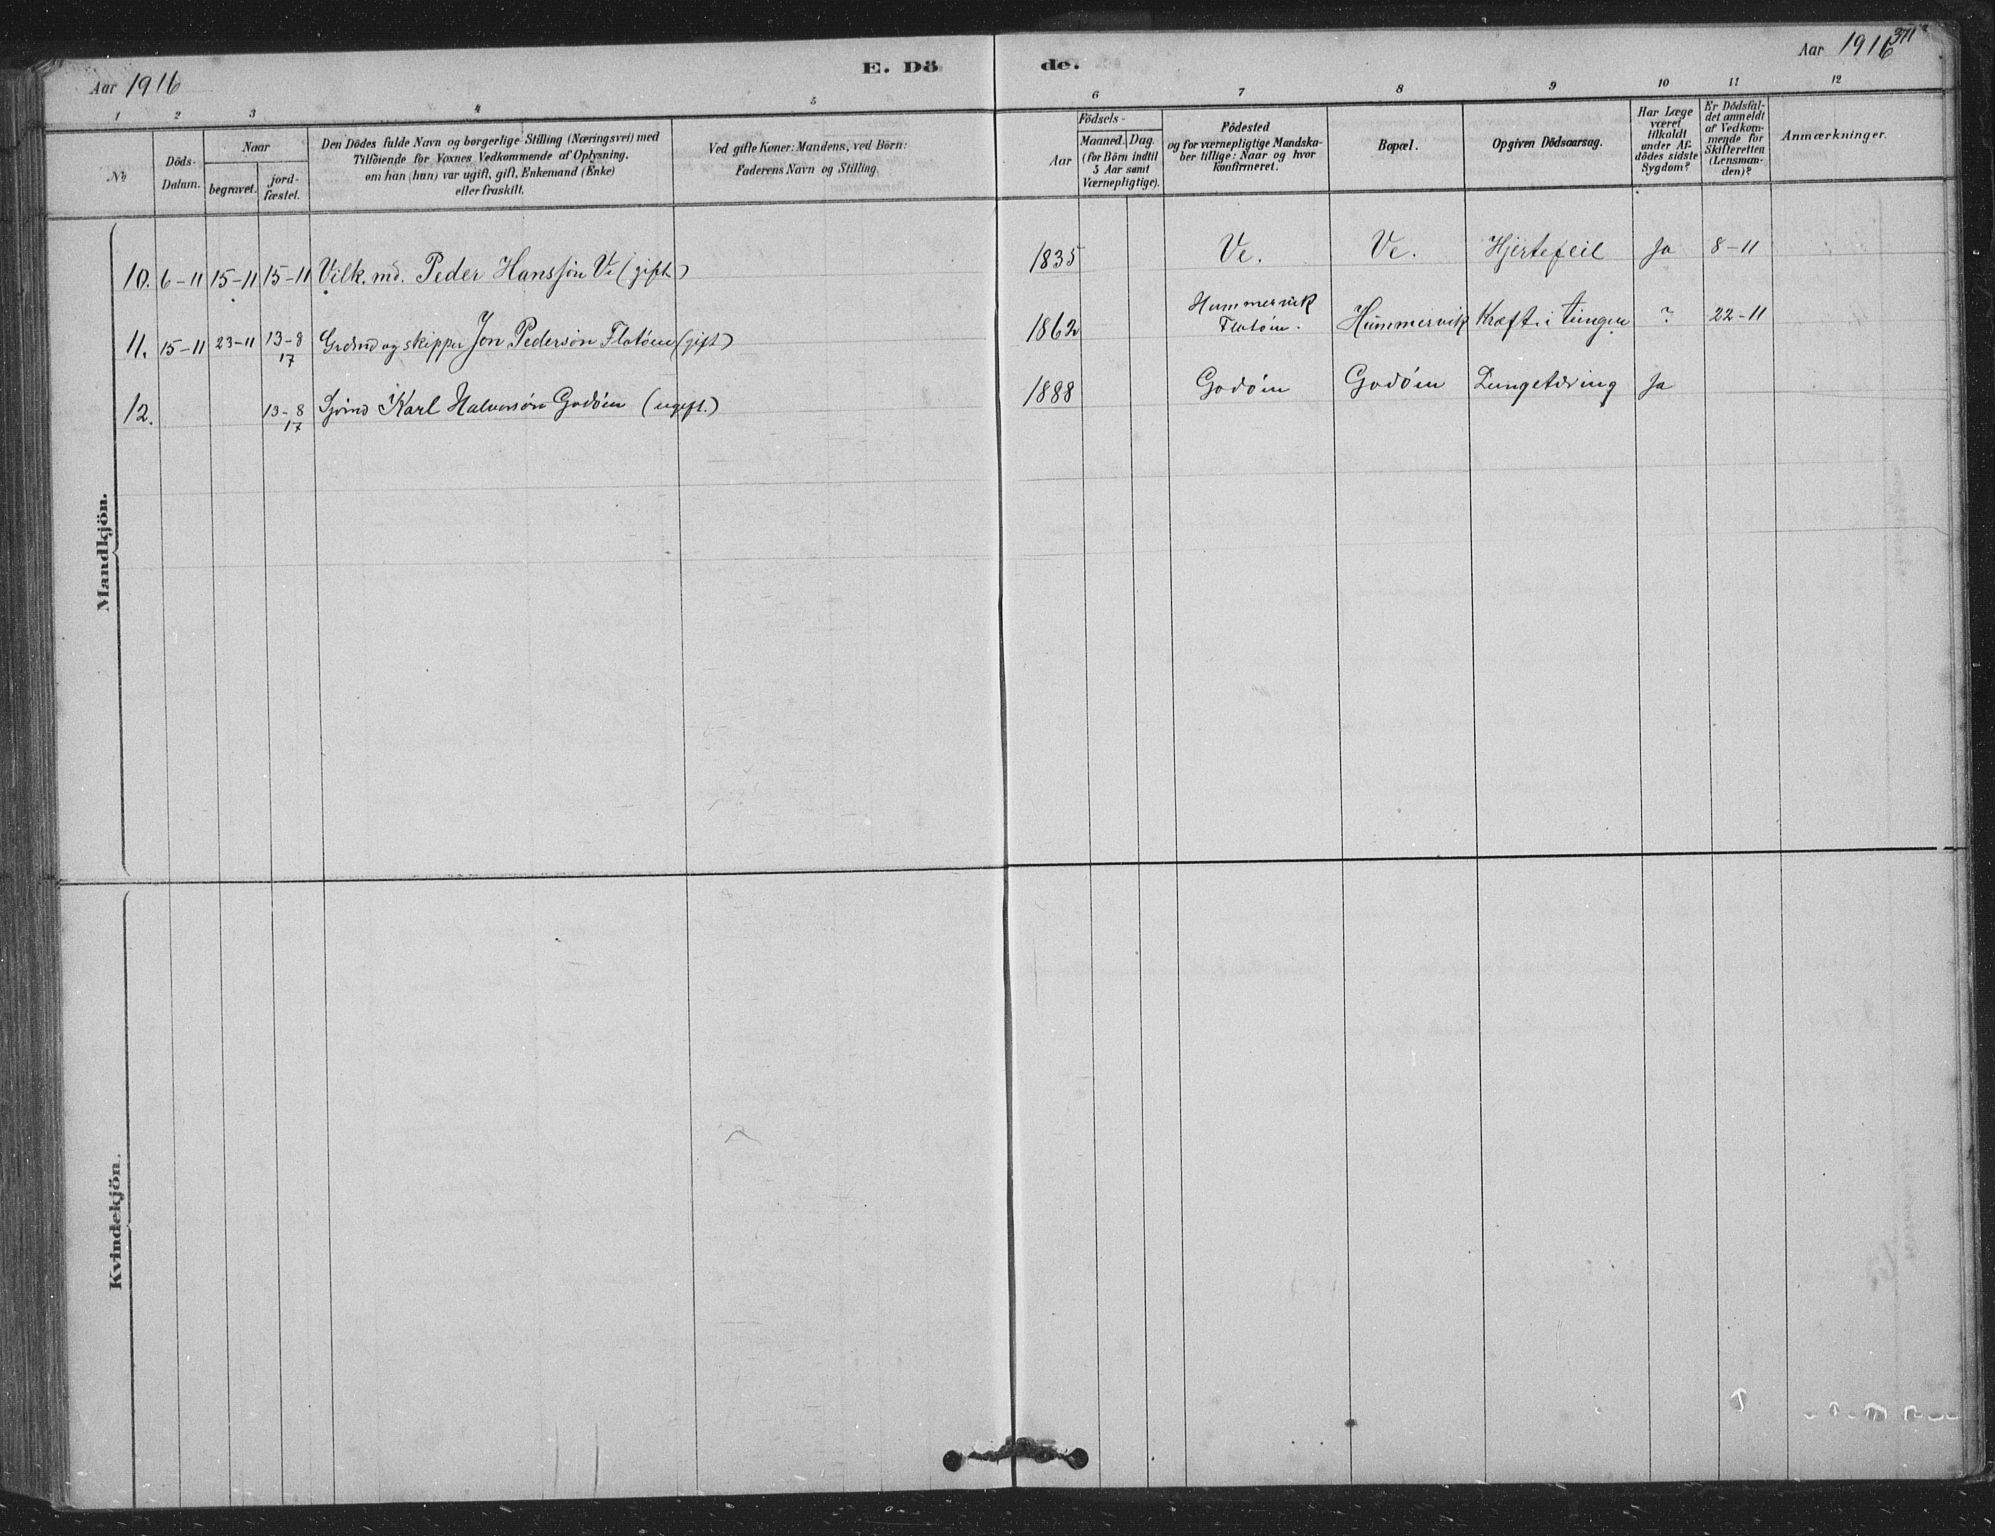 Aar 1916
E. Dö
de.
Aar 1916
371
1 2 3 4 5 6 7 8 9 10 11 12
No
Döds-
Datum.
Naar
begravet.
jord-
fæstet.
Den Dödes fulde Navn og borgerlige Stilling (Næringsvei) med
Tilföiende for Voxnes Vedkommende af Oplysning,
om han (hun) var ugift, gift, Enkemand (Enke)
eller fraskilt.
Ved gifte Koner: Mandens, ved Börn:
Faderens Navn og Stilling.
Födsels-
Aar
Maaned. Dag.
(for Börn indtil
5 Aar samt
Værnepligtige).
Födested
og for værnepligtige Mandska-
ber tillige: Naar og hvor
konfirmeret.
Bopæl.
Opgiven Dödsaarsag.
Har Læge
været
tilkaldt
under Af-
dödes sidste
Sygdom?
Er Dödsfal-
det anmeldt
af Vedkom-
mende for
Skifteretten
(Lensman-
den)?
Anmærkninger.
Mandkjön.
10. 6-11 15-11 15-11 Vilk. md. Peder Hansson Ve (gift) 1835 Ve. Ve. Hjertefeil Ja 8-11
11. 15-11 23-11 13-8 17 Grdmd og skipper Jon Pederson Flatöen (gift) 1862 Hummervik Flatöen. Hummervik Kræft i tungen ? 22-11
12. 13-8 17 Karl Halvorsön Godöen (ugift.) 1888 Godöen Godöen Lungetæring Ja
Kvindekjön.